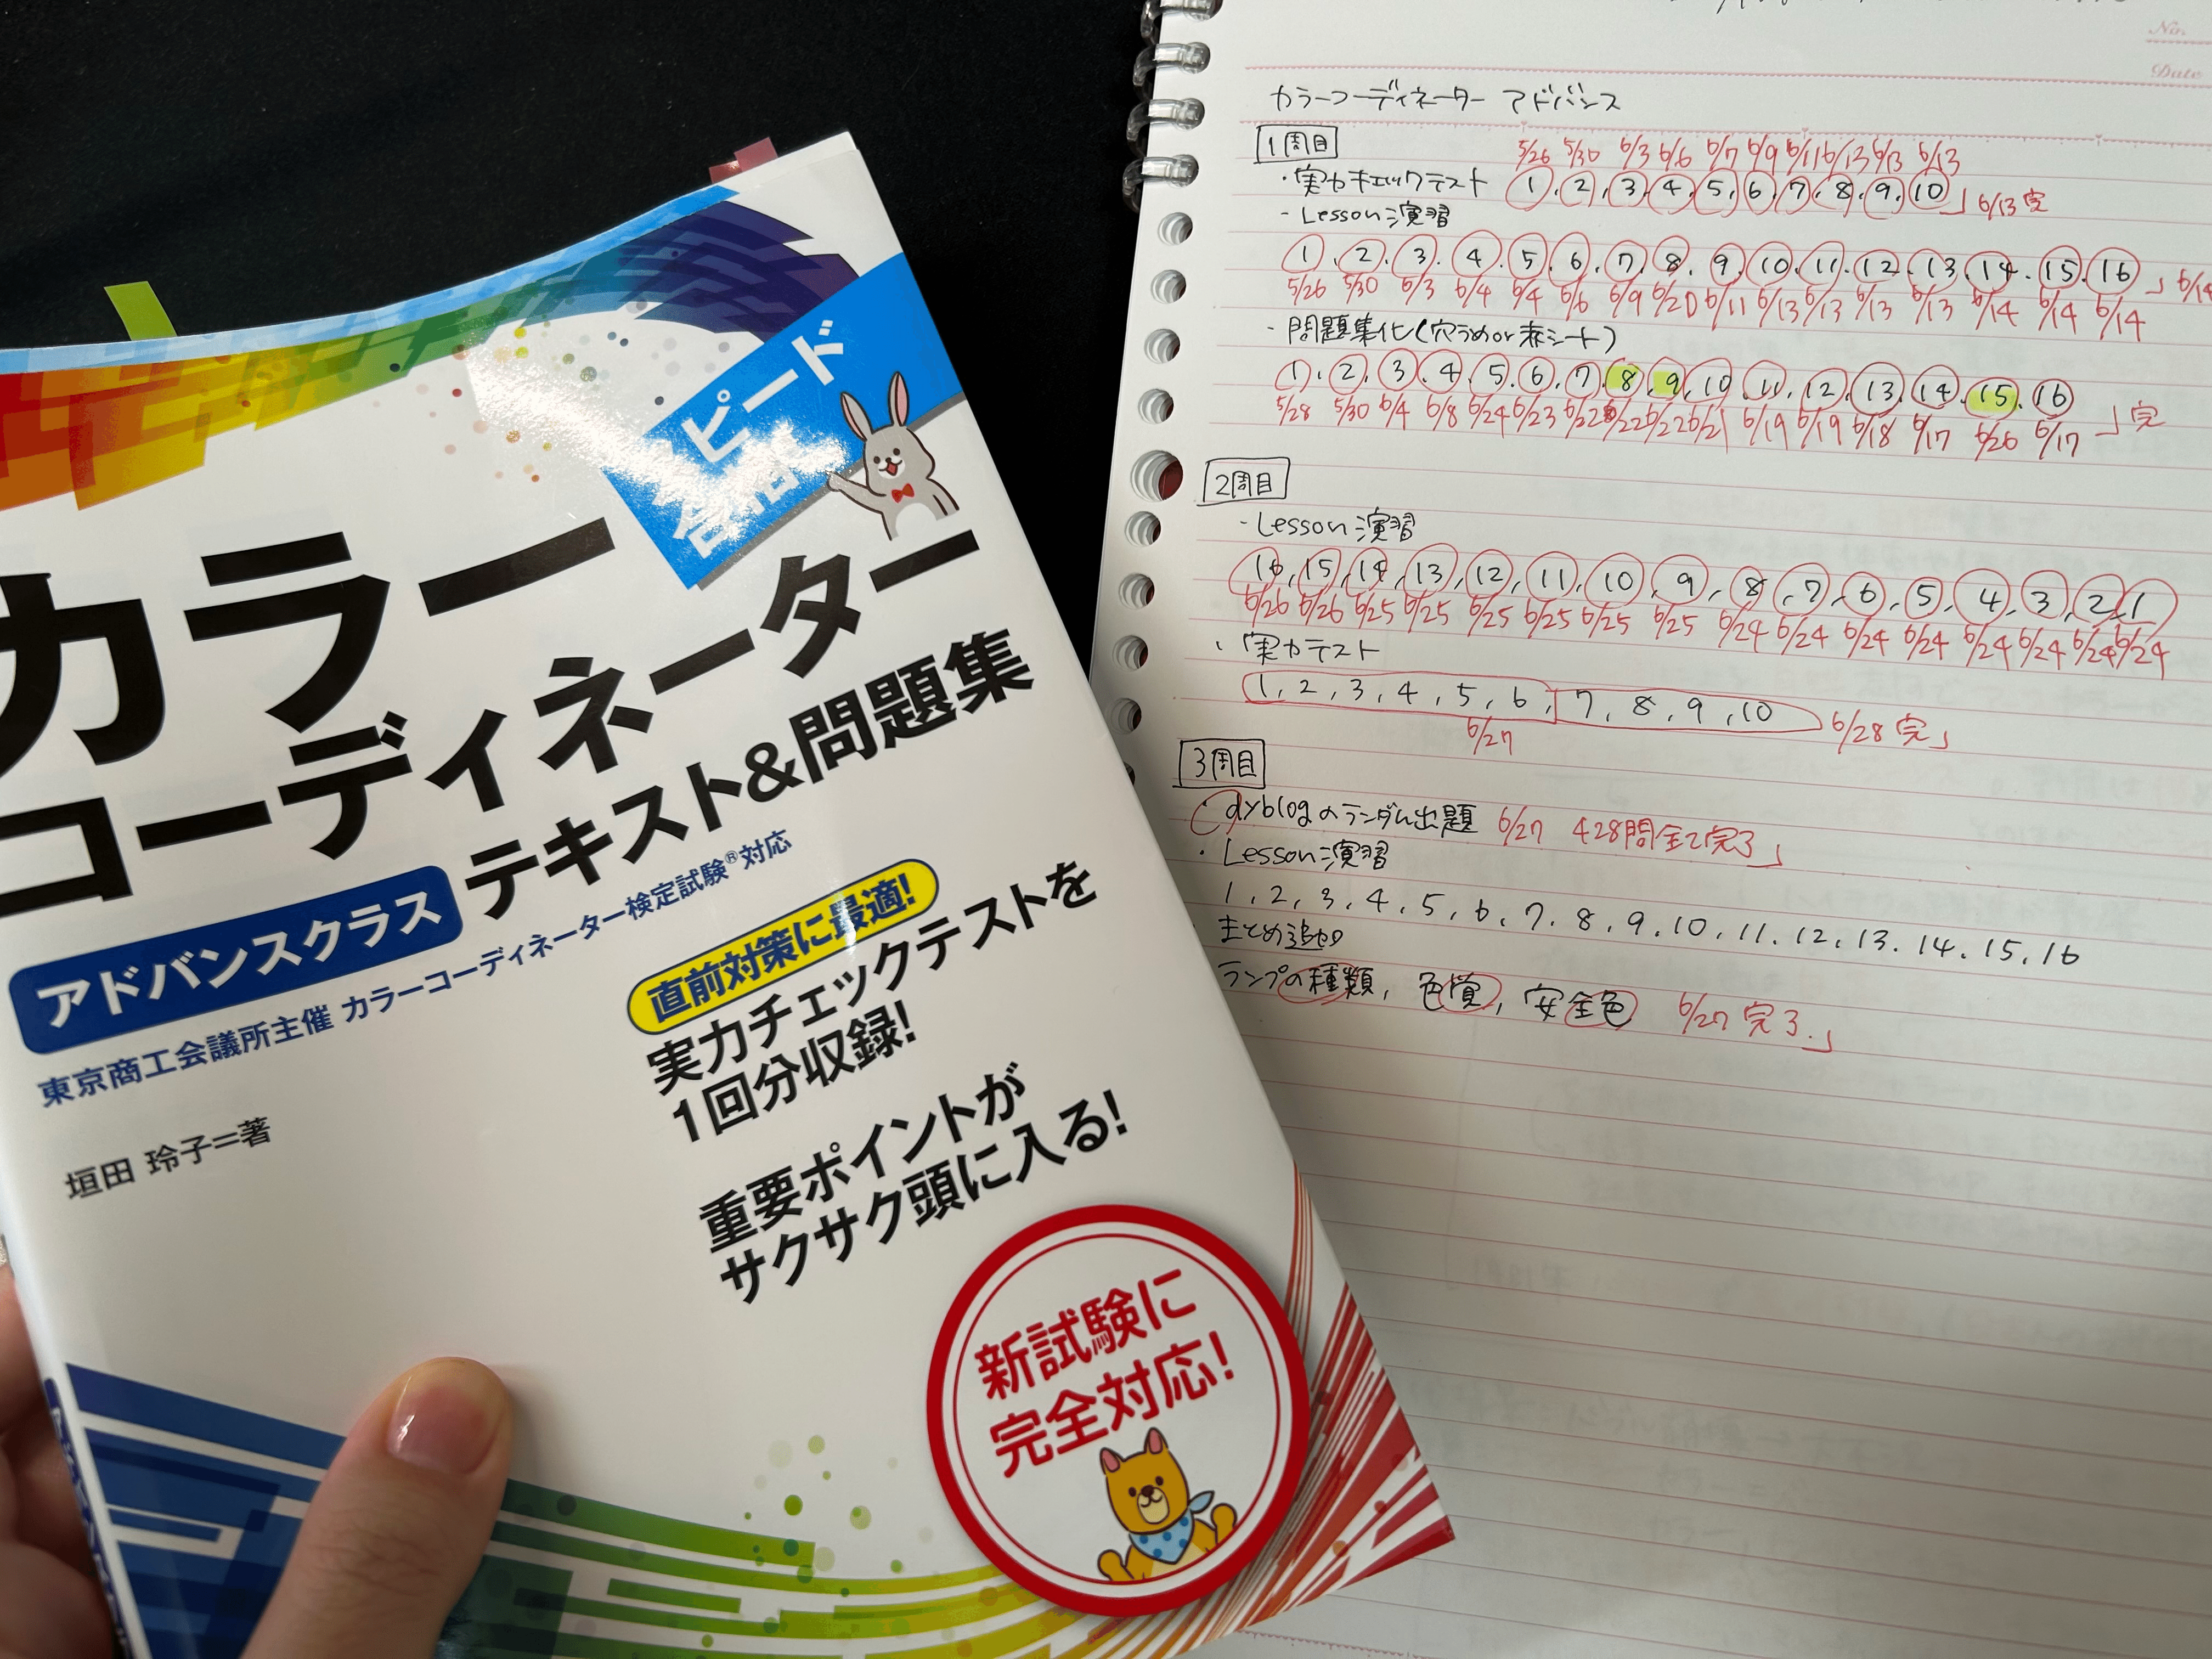 スピード
合格!
カラー
コーディネーター
アドバンスクラス テキスト&問題集
東京商工会議所主催 カラーコーディネーター検定試験®対応
垣田 玲子=著
直前対策に最適!
実力チェックテストを
1回分収録!
重要ポイントが
サクサク頭に入る!
新試験に
完全対応!
No.
Date
カラーコーディネーター アドバンス
1周目
5/26 5/30 6/3 6/6 6/7 6/9 6/11 6/13 6/13 6/13
・実力チェックテスト 1, 2, 3, 4, 5, 6, 7, 8, 9, 10」6/13完
- Lesson演習
1, 2, 3, 4, 5, 6, 7, 8, 9, 10, 11, 12, 13, 14, 15, 16」6/14
5/26 5/30 6/3 6/4 6/4 6/6 6/9 6/20 6/11 6/13 6/13 6/13 6/13 6/14 6/14 6/14
・問題集化(穴うめor赤シート)
1, 2, 3, 4, 5, 6, 7, 8, 9, 10, 11, 12, 13, 14, 15, 16
5/28 5/30 6/4 6/8 6/24 6/23 6/22 6/22 6/22 6/21 6/19 6/19 6/18 6/17 6/26 6/17 」完
2周目
・Lesson演習
16, 15, 14, 13, 12, 11, 10, 9, 8, 7, 6, 5, 4, 3, 2, 1
6/26 6/26 6/25 6/25 6/25 6/25 6/25 6/25 6/24 6/24 6/24 6/24 6/24 6/24 6/24 6/24
・実力テスト
1, 2, 3, 4, 5, 6, 7, 8, 9, 10 6/28完」
6/27
3周目
・dyblogのランダム出題 6/27 428問全て完了」
・Lesson演習
1, 2, 3, 4, 5, 6, 7, 8, 9, 10, 11, 12, 13, 14, 15, 16
まとめ追加
ランプの種類, 色覚, 安全色 6/27完了.」